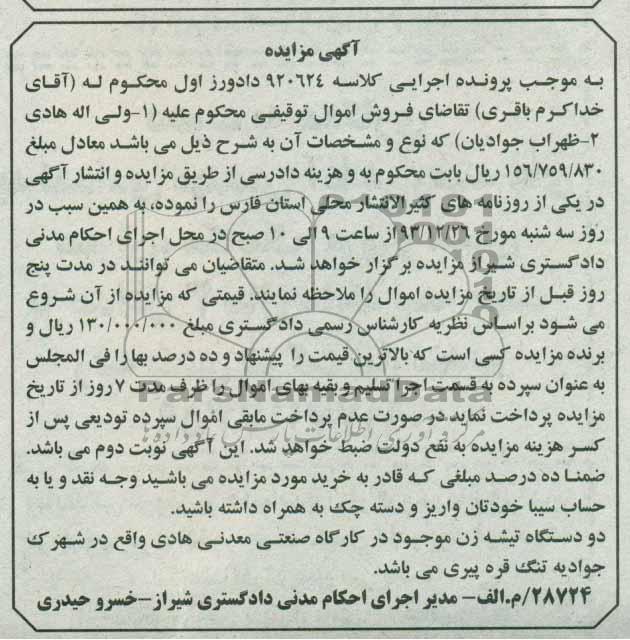 آگهی مزایده
به موجب پرونده اجرایی کلاسه ۹۲۰۶۲۴ دادورز اول محکوم له (آقای
خداکرم باقری) تقاضای فروش اموال توقیفی محکوم علیه (۱-ولی اله هادی
۲-ظهراب جوادیان) که نوع و مشخصات آن به شرح ذیل می باشد معادل مبلغ
۱۵۶/۷۵۹/۸۳۰ ریال بابت محکوم به و هزینه دادرسی از طریق مزایده و انتشار آگهی
در یکی از روزنامه های کثیرالانتشار محلی استان فارس را نموده، به همین سبب در
روز سه شنبه مورخ ۹۳/۱۲/۲۶ از ساعت ۹ الی ۱۰ صبح در محل اجرای احکام مدنی
دادگستری شیراز مزایده برگزار خواهد شد. متقاضیان می توانند در مدت پنج
روز قبل از تاریخ مزایده اموال را ملاحظه نمایند. قیمتی که مزایده از آن شروع
می شود براساس نظریه کارشناس رسمی دادگستری مبلغ ۱۳۰/۰۰۰/۰۰۰ ریال و
برنده مزایده کسی است که بالاترین قیمت را پیشنهاد و ده درصد بها را فی المجلس
به عنوان سپرده به قسمت اجرا تسلیم و بقیه بهای اموال را ظرف مدت ۷ روز از تاریخ
مزایده پرداخت نماید در صورت عدم پرداخت مابقی اموال سپرده تودیعی پس از
کسر هزینه مزایده به نفع دولت ضبط خواهد شد. این آگهی نوبت دوم می باشد.
ضمنا ده درصد مبلغی که قادر به خرید مورد مزایده می باشید وجه نقد و یا به
حساب سیبا خودتان واریز و دسته چک به همراه داشته باشید.
دو دستگاه تیشه زن موجود در کارگاه صنعتی معدنی هادی واقع در شهرک
جوادیه تنگ قره پیری می باشد.
۲۸۷۲۴/م.الف- مدیر اجرای احکام مدنی دادگستری شیراز-خسرو حیدری
ParsNamadData